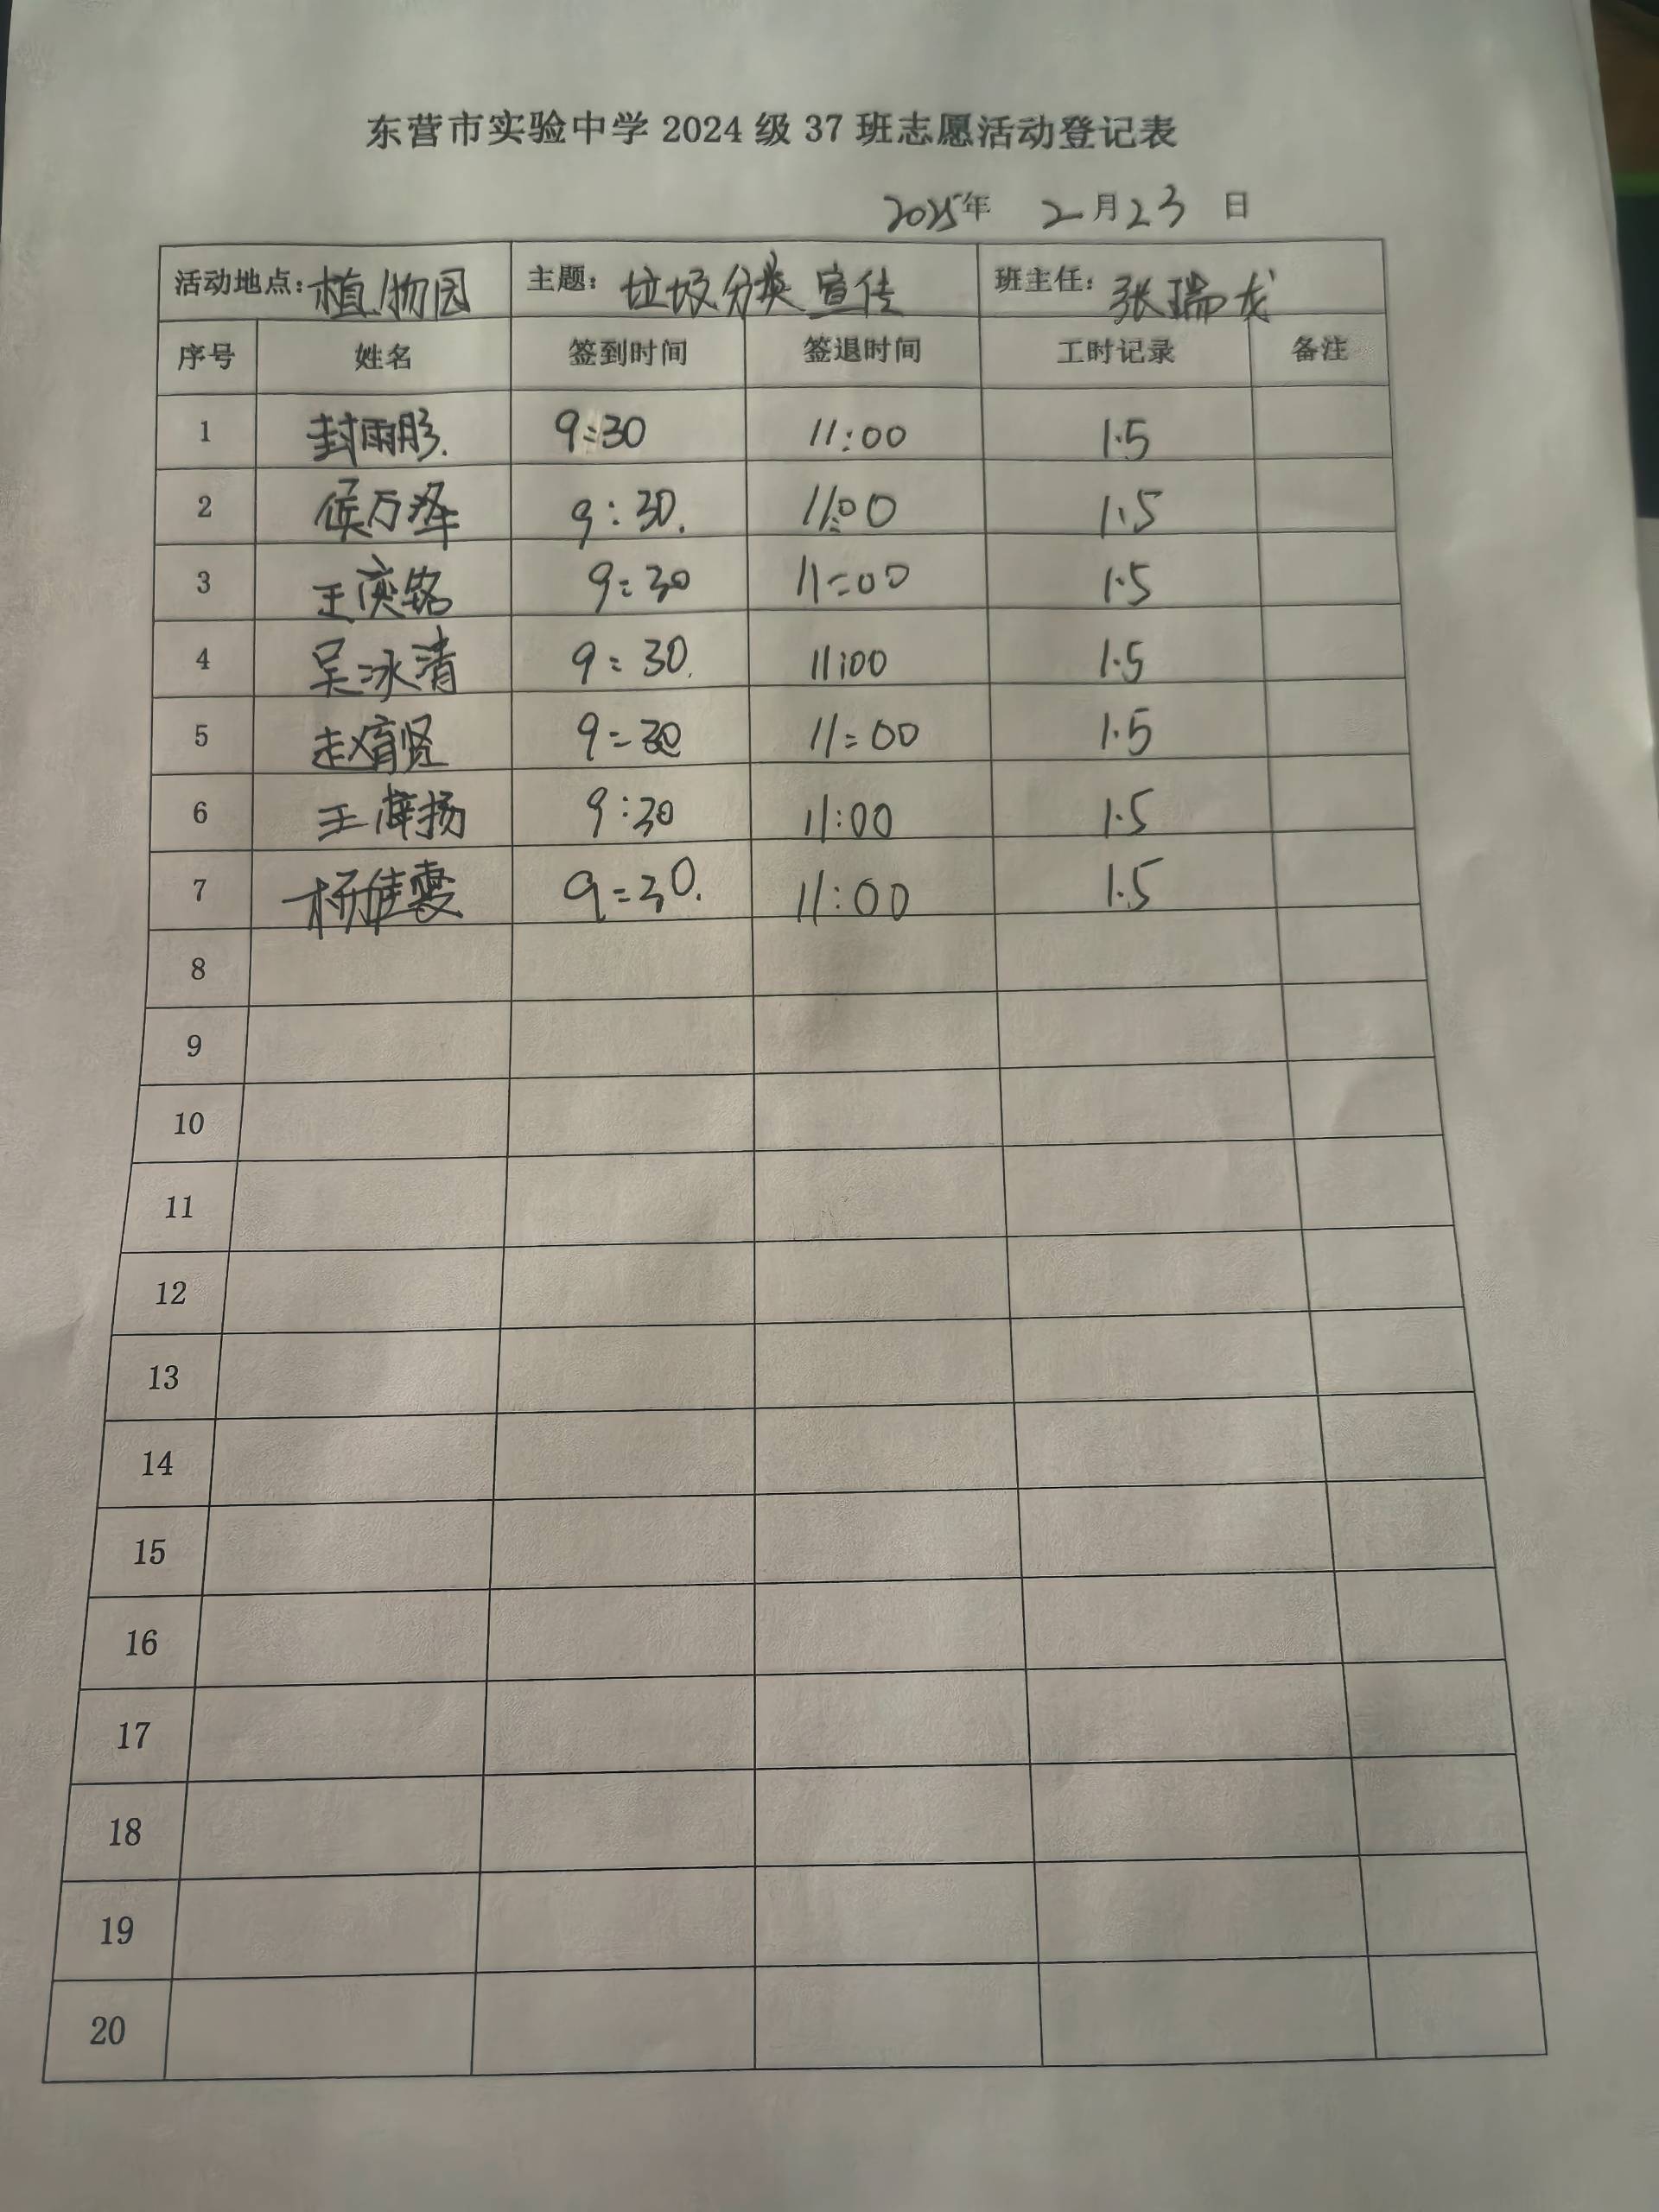 东营市实验中学 2024 级 37 班志愿活动登记表
2025年 2月23 日
活动地点:植物园 主题: 垃圾分类宣传 班主任: 张瑞龙
序号 姓名 签到时间 签退时间 工时记录 备注
1 封雨彤. 9:30 11:00 1.5
2 侯万泽 9:30. 11:00 1.5
3 王奕铭 9:30 11:00 1.5
4 吴冰清 9:30. 11:00 1.5
5 赵育贤 9:30 11:00 1.5
6 王梓扬 9:30 11:00 1.5
7 杨佳霙 9:30. 11:00 1.5
8
9
10
11
12
13
14
15
16
17
18
19
20